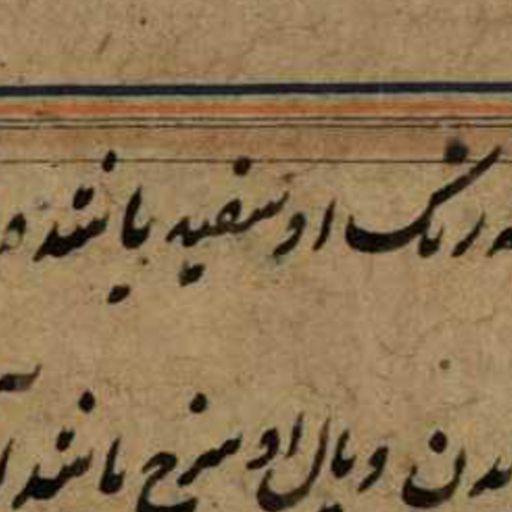 رنگ او سفید باشد
دن و یال او سرخ باشد